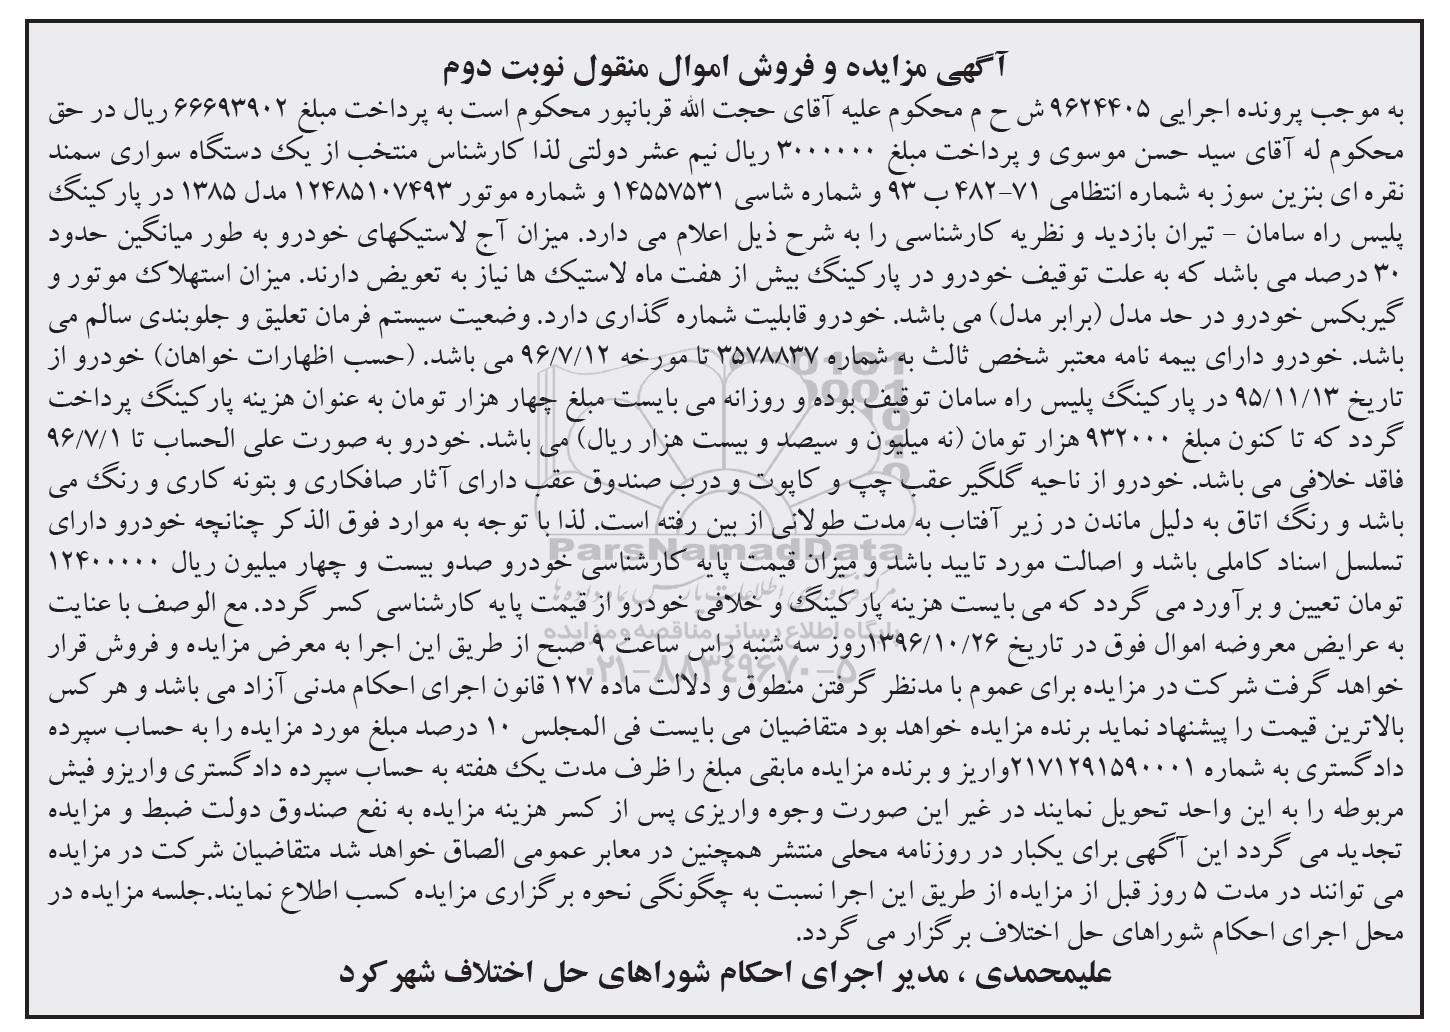 آگهی مزایده و فروش اموال منقول نوبت دوم
به موجب پرونده اجرایی ۹۶۲۴۴۰۵ ش ح م محکوم علیه آقای حجت الله قربانپور محکوم است به پرداخت مبلغ ۶۶۶۹۳۹۰۲ ریال در حق
محکوم له آقای سید حسن موسوی و پرداخت مبلغ ۳۰۰۰۰۰۰ ریال نیم عشر دولتی لذا کارشناس منتخب از یک دستگاه سواری سمند
نقره ای بنزین سوز به شماره انتظامی ۷۱-۴۸۲ ب ۹۳ و شماره شاسی ۱۴۵۵۷۵۳۱ و شماره موتور ۱۲۴۸۵۱۰۷۴۹۳ مدل ۱۳۸۵ در پارکینگ
پلیس راه سامان – تیران بازدید و نظریه کارشناسی را به شرح ذیل اعلام می دارد. میزان آج لاستیکهای خودرو به طور میانگین حدود
۳۰ درصد می باشد که به علت توقیف خودرو در پارکینگ بیش از هفت ماه لاستیک ها نیاز به تعویض دارند. میزان استهلاک موتور و
گیربکس خودرو در حد مدل (برابر مدل) می باشد. خودرو قابلیت شماره گذاری دارد. وضعیت سیستم فرمان تعلیق و جلوبندی سالم می
باشد. خودرو دارای بیمه نامه معتبر شخص ثالث به شماره ۳۵۷۸۸۳۷ تا مورخه ۹۶/۷/۱۲ می باشد. (حسب اظهارات خواهان) خودرو از
تاریخ ۹۵/۱۱/۱۳ در پارکینگ پلیس راه سامان توقیف بوده و روزانه می بایست مبلغ چهار هزار تومان به عنوان هزینه پارکینگ پرداخت
گردد که تا کنون مبلغ ۹۳۲۰۰۰ هزار تومان (نه میلیون و سیصد و بیست هزار ریال) می باشد. خودرو به صورت علی الحساب تا ۹۶/۷/۱
فاقد خلافی می باشد. خودرو از ناحیه گلگیر عقب چپ و کاپوت و درب صندوق عقب دارای آثار صافکاری و بتونه کاری و رنگ می
باشد و رنگ اتاق به دلیل ماندن در زیر آفتاب به مدت طولانی از بین رفته است. لذا با توجه به موارد فوق الذکر چنانچه خودرو دارای
تسلسل اسناد کاملی باشد و اصالت مورد تایید باشد و میزان قیمت پایه کارشناسی خودرو صدو بیست و چهار میلیون ریال ۱۲۴۰۰۰۰۰
تومان تعیین و برآورد می گردد که می بایست هزینه پارکینگ و خلافی خودرو از قیمت پایه کارشناسی کسر گردد. مع الوصف با عنایت
به عرایض معروضه اموال فوق در تاریخ ۱۳۹۶/۱۰/۲۶روز سه شنبه راس ساعت ۹ صبح از طریق این اجرا به معرض مزایده و فروش قرار
خواهد گرفت شرکت در مزایده برای عموم با مدنظر گرفتن منطوق و دلالت ماده ۱۲۷ قانون اجرای احکام مدنی آزاد می باشد و هر کس
بالاترین قیمت را پیشنهاد نماید برنده مزایده خواهد بود متقاضیان می بایست فی المجلس ۱۰ درصد مبلغ مورد مزایده را به حساب سپرده
دادگستری به شماره ۲۱۷۱۲۹۱۵۹۰۰۰۱واریز و برنده مزایده مابقی مبلغ را ظرف مدت یک هفته به حساب سپرده دادگستری واریزو فیش
مربوطه را به این واحد تحویل نمایند در غیر این صورت وجوه واریزی پس از کسر هزینه مزایده به نفع صندوق دولت ضبط و مزایده
تجدید می گردد این آگهی برای یکبار در روزنامه محلی منتشر همچنین در معابر عمومی الصاق خواهد شد متقاضیان شرکت در مزایده
می توانند در مدت ۵ روز قبل از مزایده از طریق این اجرا نسبت به چگونگی نحوه برگزاری مزایده کسب اطلاع نمایند.جلسه مزایده در
محل اجرای احکام شوراهای حل اختلاف برگزار می گردد.
علیمحمدی ، مدیر اجرای احکام شوراهای حل اختلاف شهر کرد
ParsNamadData
پایگاه اطلاع رسانی مناقصه و مزایده
۰۲۱-۸۸۳۴۹۶۷۰-۵